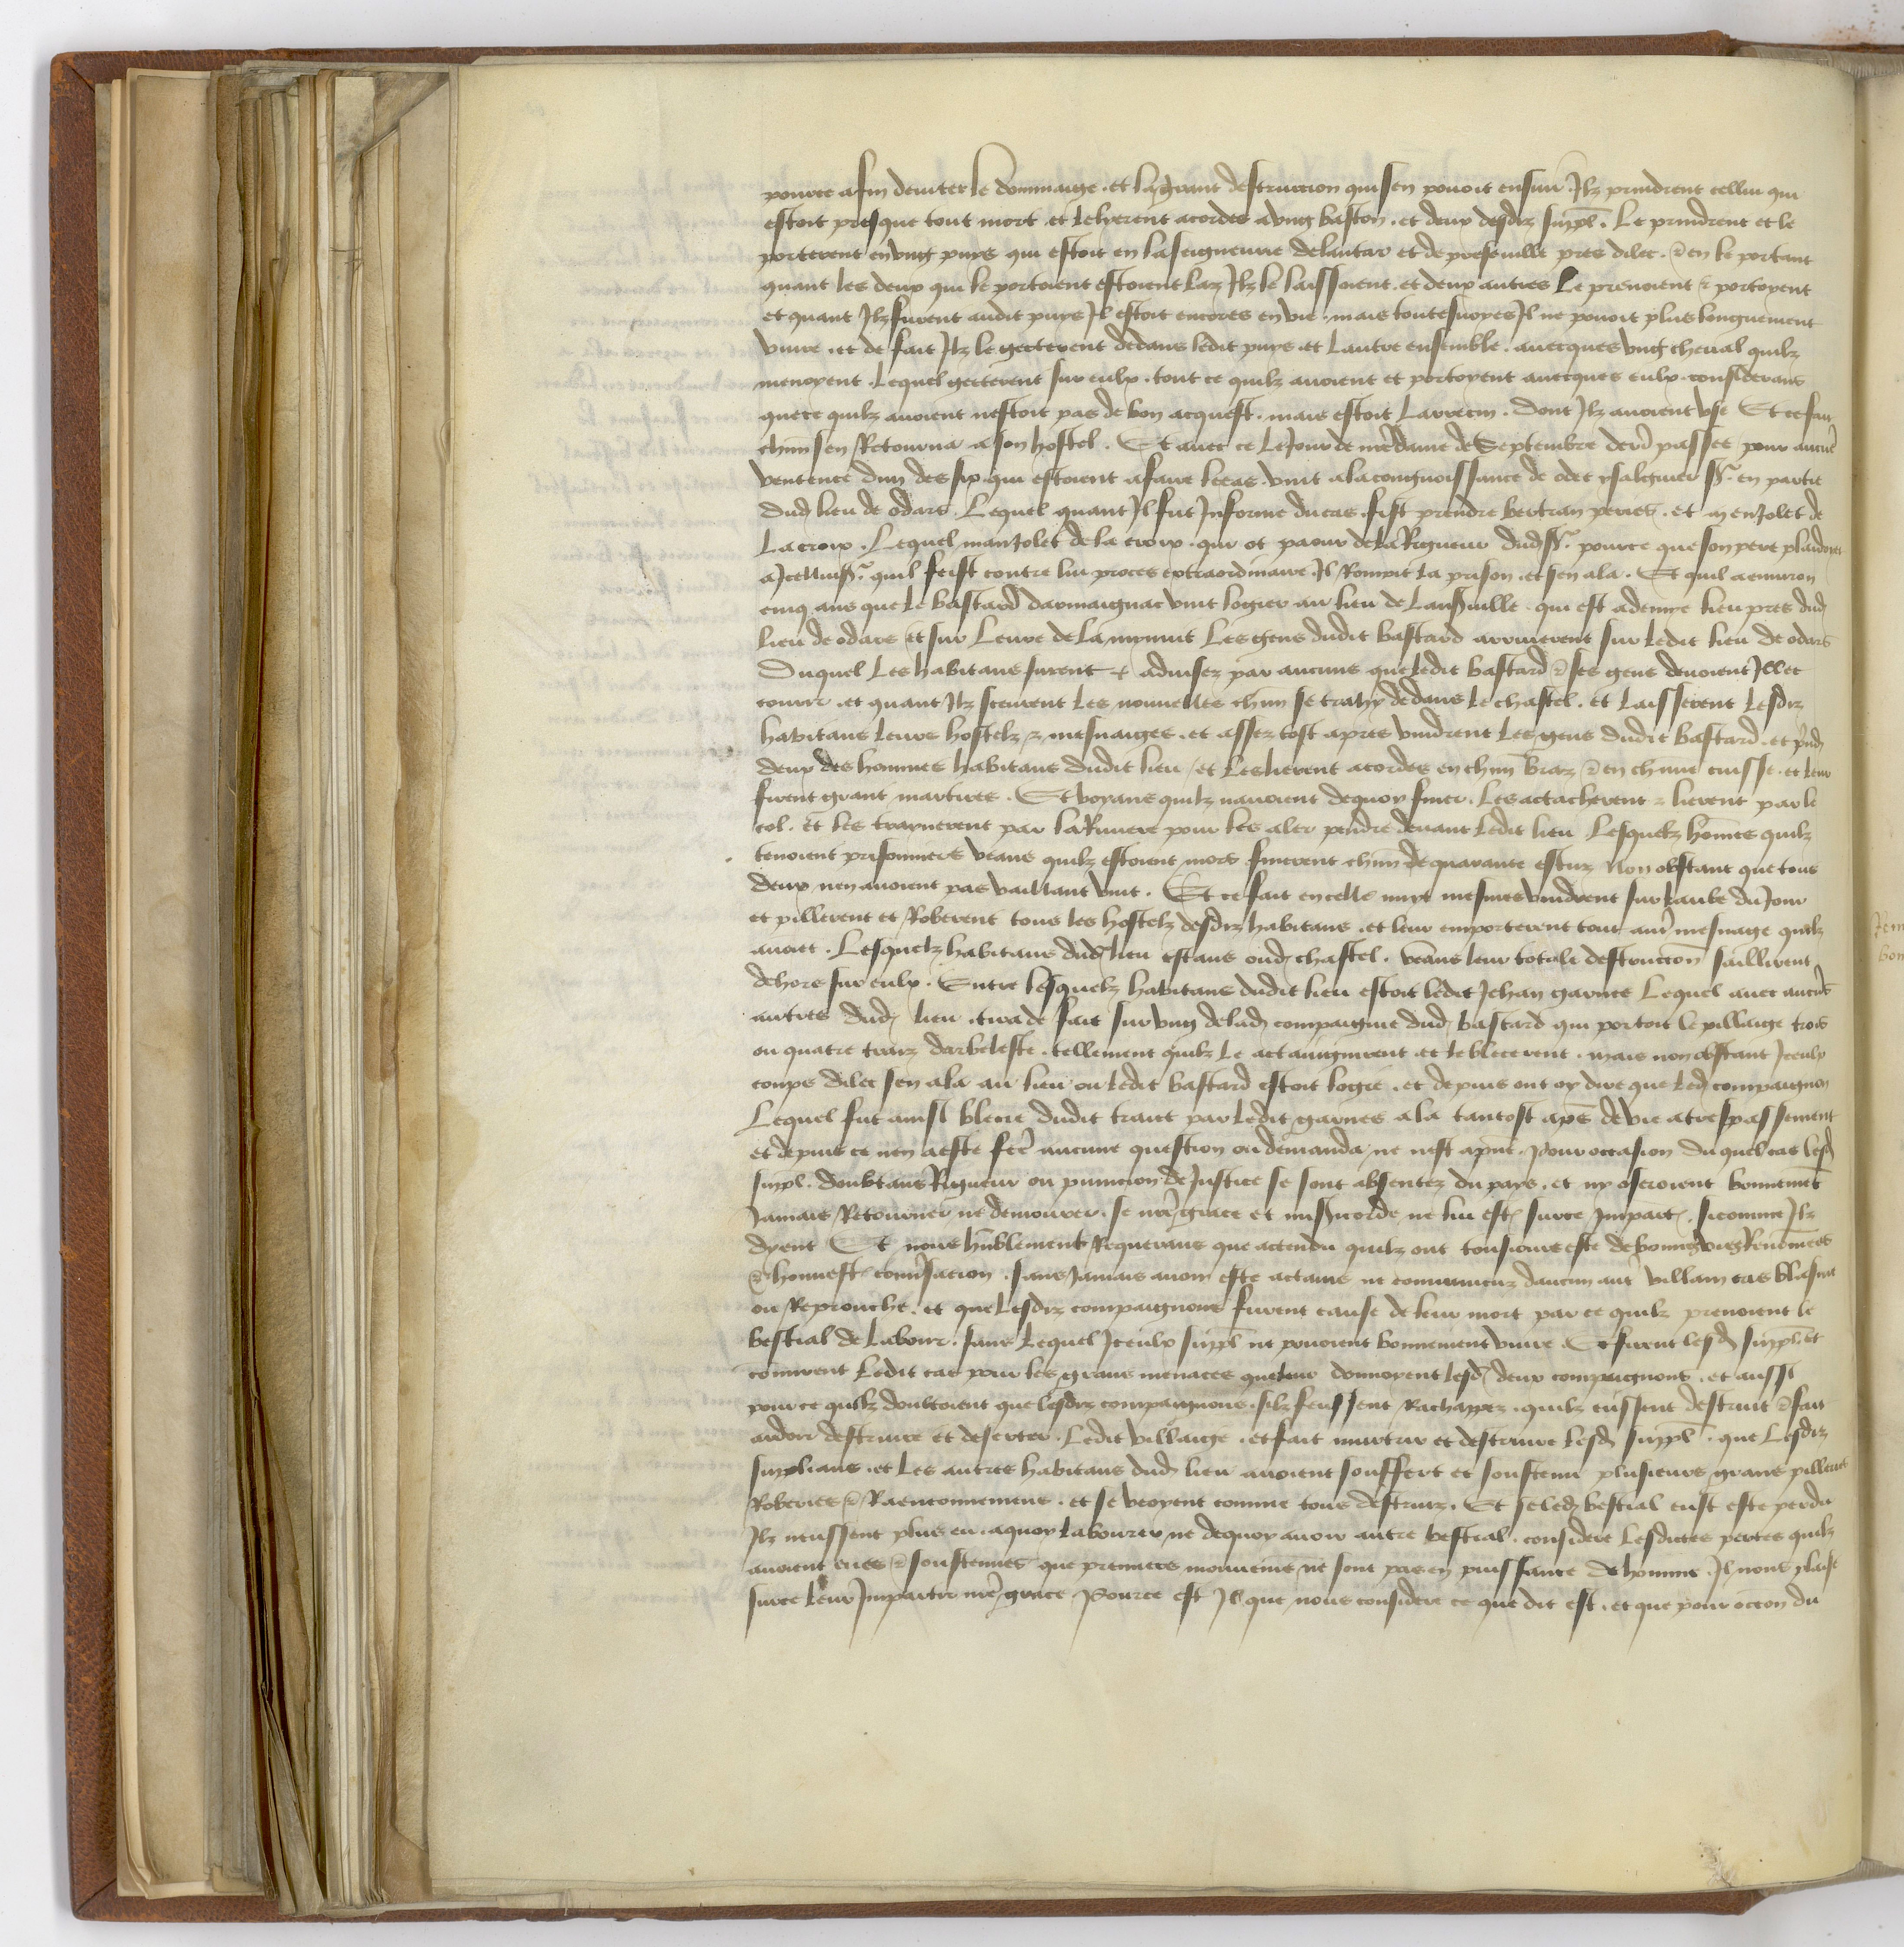 pource afin deviter le dommaige et la grant destruction qui sen povoit ensuir Ilz prindrent cellui qui
estoit presque tout mort et le lierent a cordes a ung baston et deux desdiz suppl. Le prindrent et le
porterent en ung puys qui estoit en la seigneurie de lantar et de preserville pres dilec. & en le portant
quant les deux qui le portoient estoient laz Ilz le laissoient et deux autres Le prenoient & portoyent
et quant Ilz furent audit puys Il estoit encores en vie mais toutesvoyes Il ne povoit plus longuement
vivre et de fait Ilz le getterent dedans ledit puys et lautre ensemble avecques ung cheval quilz
menoyent Lequel getterent sur eulx tout ce quilz avoient et portoyent avecques eulx considerans
que ce quilz avoient nestoit pas de bon acquest mais estoit Larrecin dont Ilz avoient use Et ce fait
chun sen Retourna a son hostel. Et avec ce Le Jour de nre dame de Septembre derr passee pour aucune
ventence dun des six qui estoient a faire le cas vint a la congnoissance de odet ysalguier sr en partie
dud lieu de Odars. Lequel quant Il fut Informe du cas fist prendre Bertran peries et menJolet de
La croix. Lequel manJolet de la croix qui ot paour de la Rigueur dud sr pource que son pere plaidoyet
a Icellui sr quil feist contre lui proces extraordinaire Il Rompit la prison et sen ala. Et quil a environ
cinq ans que Le bastard darmaignac vint logier au lieu de Lanserville qui est a demye lieu pres dud
lieu de odars et sur Leure de la mynuit Les gens dudit bastard arriverent sur ledit lieu de odars
Duquel Les habitans furent advisez par aucuns que ledit bastard & ses gens devoient Illec
courir et quant Ilz sceurent Les nouvelles chun se trahy dedans le chastel et Laisserent Lesdiz
habitans leurs hostelz & mesnaiges et assez tost apres vindrent Les gens dudit bastard et prind
deux des hommes habitans dudit lieu et Les lierent a cordes en chun braz & en chune cuisse et leur
firent grant martires. Et voyans quilz navoient dequoy finer Les actacherent & lierent par le
col et les traynerent par la Riviere pour les aler pendre devant Ledit lieu Lesquelz hommes quilz
tenoient prisonniers veans quilz estoient mors finerent chun de quarante escuz Non obstant que tous
deux nen avoient pas vaillant vint. Et ce fait en celle nuyt mesmes vindrent sur Laube du Jour
et pillerent et Roberent tous les hostelz desdiz habitans et leur emporterent tout autre mesnage quilz
avoiet. Lesquelz habitans dud lieu estans oud chastel veans leur totale destruccion saillirent
dehors sur eulx. Entre lesquelz habitans dudit lieu estoit ledit Jehan garnes Lequel avec aucuns
autres dud lieu tira de fait sur ung de lad compaignie dud bastard qui portoit le pillaige trois
ou quatre traiz darbeleste tellement quilz Le actaignirent et le blecerent mais non obstant Iceulx
coups dilec sen ala au lieu ou ledit bastard estoit logie et depuis ont oy dire que led compaignon
Lequel fut ainsi blecie dudit traict par Ledit garnes ala tantost apres de vie a trespassement
et depuis ce nen a este fete aucune question ou demanda ne nest apne Pour occasion du quel cas lesd
suppl. doubtans Rigueur ou punicion de Justice se sont absentez du pays et ny oseroient bonnement
Jamais Retourner ne demourer se nre grace et misericorde ne lui est sur ce Impart. sicomme Ilz
dyent Et nous humblement Requerans que actendu quilz ont tousiours este de bonnes vies Renommees
& honneste conversacion sans Jamais avoir este actains ne convaincuz daucun aut villain cas blasme
ou Reprouche et que Lesdiz compaignons furent cause de leur mort par ce quilz prenoient le
bestial de Labour sans Lequel Iceulx suppl ne povoient bonnement vivre Et firent lesd suppl et
commirent Ledit cas pour les grans menaces que leur donnoyent lesd deux compaignons et aussi
pour ce quilz doubtoient que lesdiz compaignons silz feussent Rachappez quilz eussent destruit & fait
ardoir destruire et deserter Ledit villaige et fait murtrir et destruire lesd suppl. que Lesdiz
supplians et Les autres habitans dud lieu avoient souffert et soustenu plusieurs grans pilleries
Roberies & Raenconnemens et se veoyent comme tous destruiz. Et se led bestial eust este perdu
Ilz neussent plus eu a quoy labourer ne dequoy avoir autre bestial considere Lesdictes pertes quilz
avoient eues & soustenues que premiers mouvemens ne sont pas en puissance de homme Il nous plaise
sur ce leur Impartir nre grace Pource est Il que nous considere ce que dit est et que pour occon du